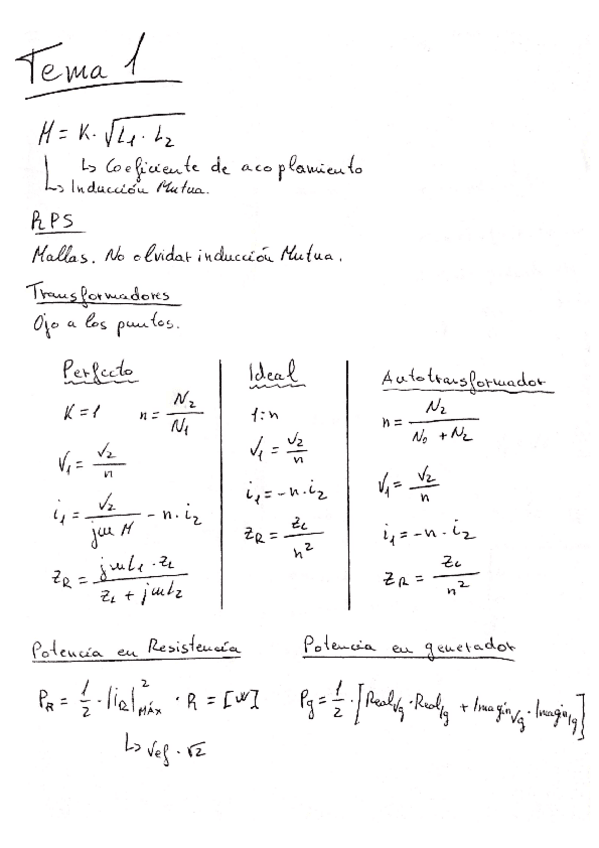 Tema 1
M = K · √L₁ · L₂
↳ Coeficiente de acoplamiento
↳ Inducción Mutua.
RPS
Mallas. No olvidar inducción Mutua.
Transformadores
Ojo a los puntos.
Perfecto
K = 1 n = N₂/N₁
V₁ = V₂/n
i₁ = V₂/jωM - n · i₂
Z_R = jωL₁ · Z_L / Z_L + jωL₂
Ideal
1:n
V₁ = V₂/n
i₁ = -n · i₂
Z_R = Z_L/n²
Autotransformador
n = N₂ / N₀ + N₂
V₁ = V₂/n
i₁ = -n · i₂
Z_R = Z_L/n²
Potencia en Resistencia
P_R = 1/2 · |i_R|²_MÁX · R = [W]
↳ Vef · √2
Potencia en generador
Pg = 1/2 · [Real_Vg · Real_Ig + Imagin_Vg · Imagin_Ig]